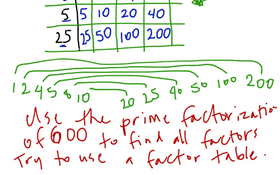 5 5 10 20 40
25 25 50 100 200
1 2 4 5 8 10 20 25 40 50 100 200
Use the prime factorizatio
of 600 to find all factors
Try to use a factor table.